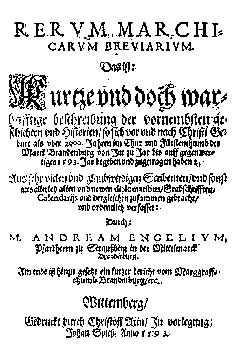 RERVM MARCHI-
CARVM BREVIARIVM.
Das ist:
Kurtze vnd doch war-
hafftige beschreibung der vornembsten ge-
schichten vnd Historien / so sich vor vnd nach Christi Ge-
burt als vber 2000. Jahren im Chur vnd Fürstenthumb der
Marck Brandenburg von Jar zu Jar bis auff gegenwer-
tiges 1593. Jar begeben vnd zugetragen haben /
Aus sehr vielen vnd glaubwirdigen Scribenten / vnd sonst
aus allerley alten vnd newen
Calendarijs vnd dergleichen zusammen gebracht /
vnd ordentlich verfasset:
Durch:
M. ANDREAM ENGELIVM,
Pfarrherrn zu Straußberg in der Mittelmarck
Brandenburg.
Am ende ist hinzu gesetzt ein kurtzer bericht vom Marggraff-
thumb Brandenburg / etc.
Wittemberg /
Gedruckt durch Christoff Axin / In vorlegung
Johan Spieß. Anno 1593.